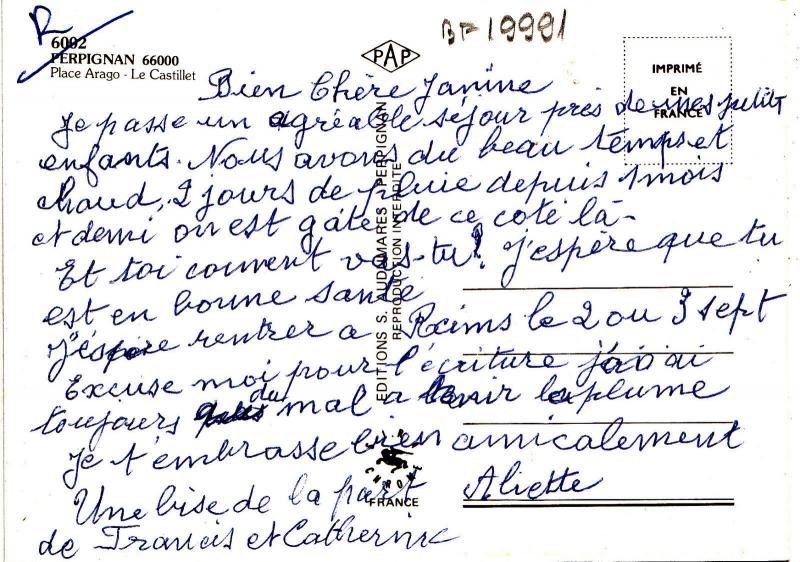 R
6002
PERPIGNAN 66000
Place Arago - Le Castillet
BF 19991
PAP
IMPRIMÉ
EN
FRANCE
Bien Chère Janine
Je passe un agréable séjour près de mes petits
enfants. Nous avons du beau temps et
chaud, 2 jours de pluie depuis 1 mois
et demi on est gâté de ce coté là -
Et toi comment vas-tu? J'espère que tu
est en bonne santé
J'espère rentrer a Reims le 2 ou 3 sept
Excuse moi pour l'écriture j'ai
toujours du mal a tenir la plume
Je t'embrasse bien amicalement
Aliette
Une bise de la part
de Francis et Catherine
EDITIONS S. AUDUMARES PERPIGNAN
REPRODUCTION INTERDITE
CHROME
FRANCE